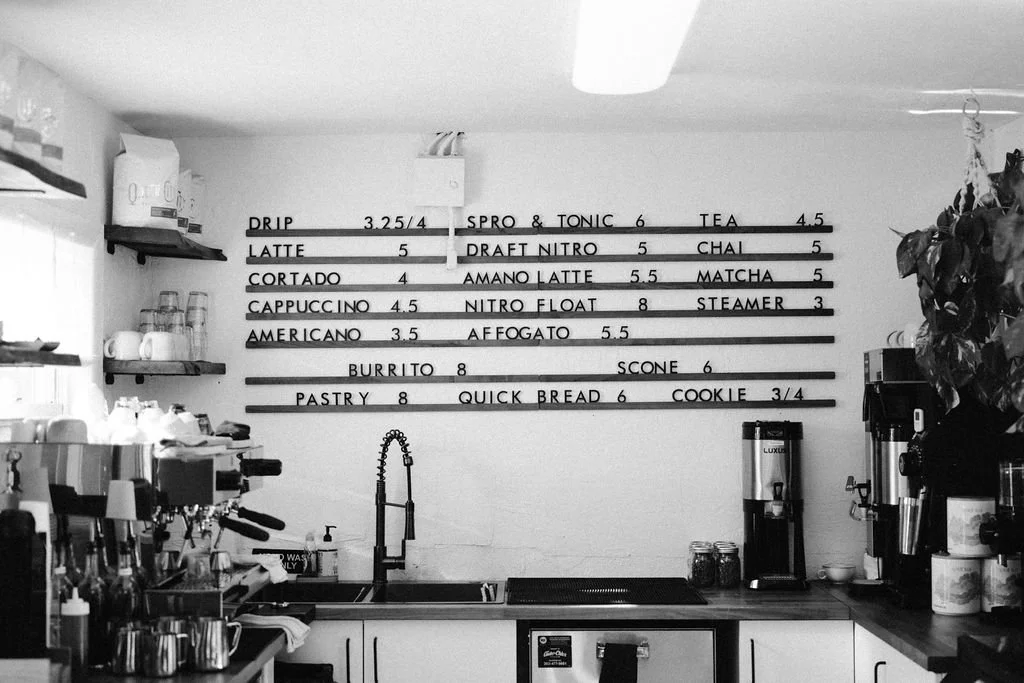 DRIP 3.25/4 SPRO & TONIC 6 TEA 4.5
LATTE 5 DRAFT NITRO 5 CHAI 5
CORTADO 4 AMANO LATTE 5.5 MATCHA 5
CAPPUCCINO 4.5 NITRO FLOAT 8 STEAMER 3
AMERICANO 3.5 AFFOGATO 5.5
BURRITO 8 SCONE 6
PASTRY 8 QUICK BREAD 6 COOKIE 3/4
LUXUS
ONLY